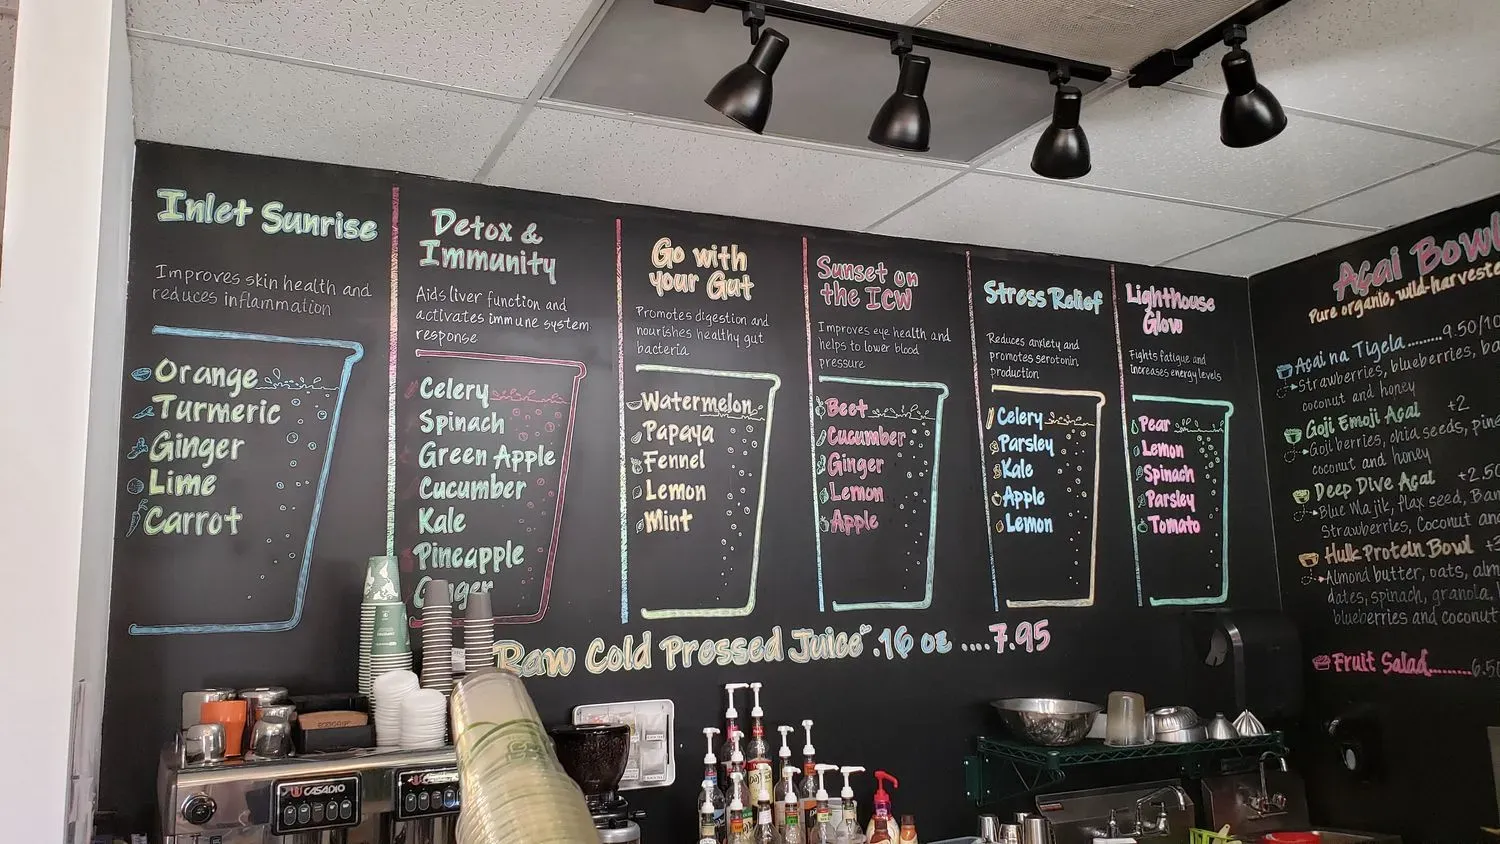 Inlet Sunrise
Improves skin health and
reduces inflammation
Orange
Turmeric
Ginger
Lime
Carrot
Detox &
Immunity
Aids liver function and
activates immune system
response
Celery
Spinach
Green Apple
Cucumber
Kale
Pineapple
Ginger
Go with
your Gut
Promotes digestion and
nourishes healthy gut
bacteria
Watermelon
Papaya
Fennel
Lemon
Mint
Sunset on
the ICW
Improves eye health and
helps to lower blood
pressure
Beet
Cucumber
Ginger
Lemon
Apple
Stress Relief
Reduces anxiety and
promotes serotonin
production
Celery
Parsley
Kale
Apple
Lemon
Lighthouse
Glow
Fights fatigue and
increases energy levels
Pear
Lemon
Spinach
Parsley
Tomato
Raw Cold Pressed Juice .16 oz ....7.95
Açai Bowl
Pure organic, wild-harveste
Açai na Tigela ........9.50/10
Strawberries, blueberries, ba
coconut and honey
Goji Emoji Açai +2
Goji berries, chia seeds, pine
coconut and honey
Deep Dive Açai +2.50
Blue Majik, flax seed, Ban
Strawberries, Coconut and
Hulk Protein Bowl +3
Almond butter, oats, alm
dates, spinach, granola,
blueberries and coconut
Fruit Salad........6.50
CASADIO